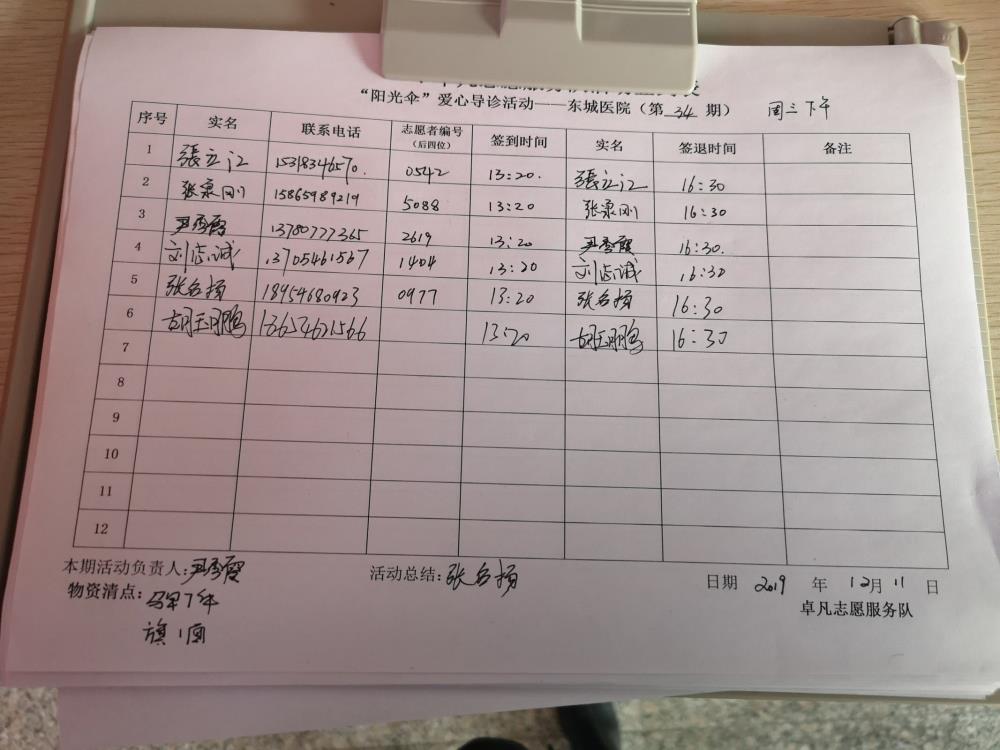 “阳光伞”爱心导诊活动——东城医院（第 34 期） 周三下午
序号 实名 联系电话 志愿者编号（后四位） 签到时间 实名 签退时间 备注
1 張立江 15318346570. 0542 13:20. 張立江 16:30
2 张景刚 15865989219 5088 13:20 张景刚 16:30
3 尹秀霞 13780777365 2619 13:20 尹秀霞 16:30.
4 刘志诚 13705461567 1404 13:20 刘志诚 16:30
5 张名扬 18954680923 0977 13:20 张名扬 16:30
6 胡玉鹏 13654621566 13:20 胡玉鹏 16:30
7
8
9
10
11
12
本期活动负责人:尹秀霞 活动总结:张名扬 日期 2019 年 12月 11 日
物资清点: 7件 卓凡志愿服务队
旗1面